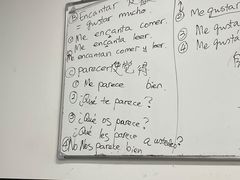 Ⓑ Encantar
= gustar mucho
① Me encanta comer.
Me encanta leer.
② Me encantan comer y leer.
Ⓒ parecer 觉得
① Me parece bien.
② ¿Qué te parece?
③ ¿Qué os parece?
¿Qué les parece a ustedes?
④ No Nos parece bien
Me gustar
③ Me gusta
④ Me gusta